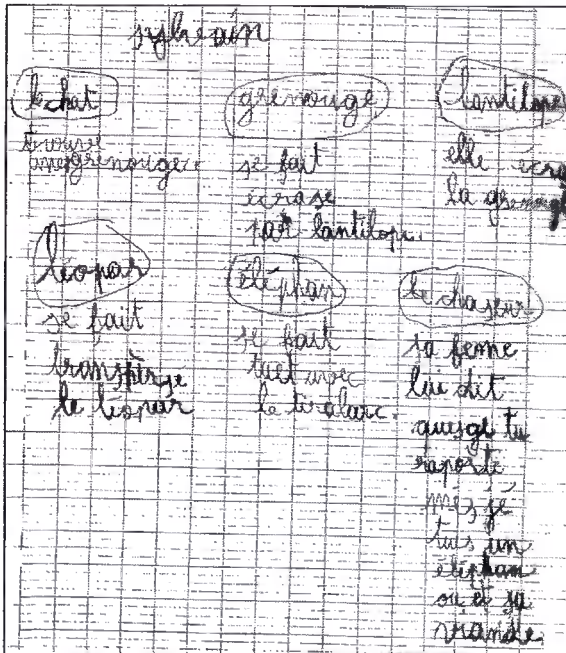 sylvain
le chat
trouve
une grenouge
grenouge
se fait
écrase
par lantilope.
lantilope
elle écra
la grenouge
léopar
se fait
transpérse
le léopar
éléphan
se fait
tuet avec
le tiralarc.
le chaseur
sa feme
lui dit
quesge tu
raporte
mez jé
tuis un
éléphan
ou é sa
viande.